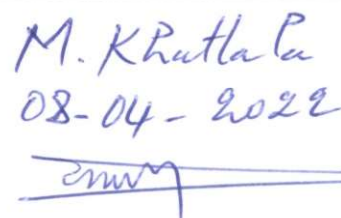 M. Khatlala
08-04-2022